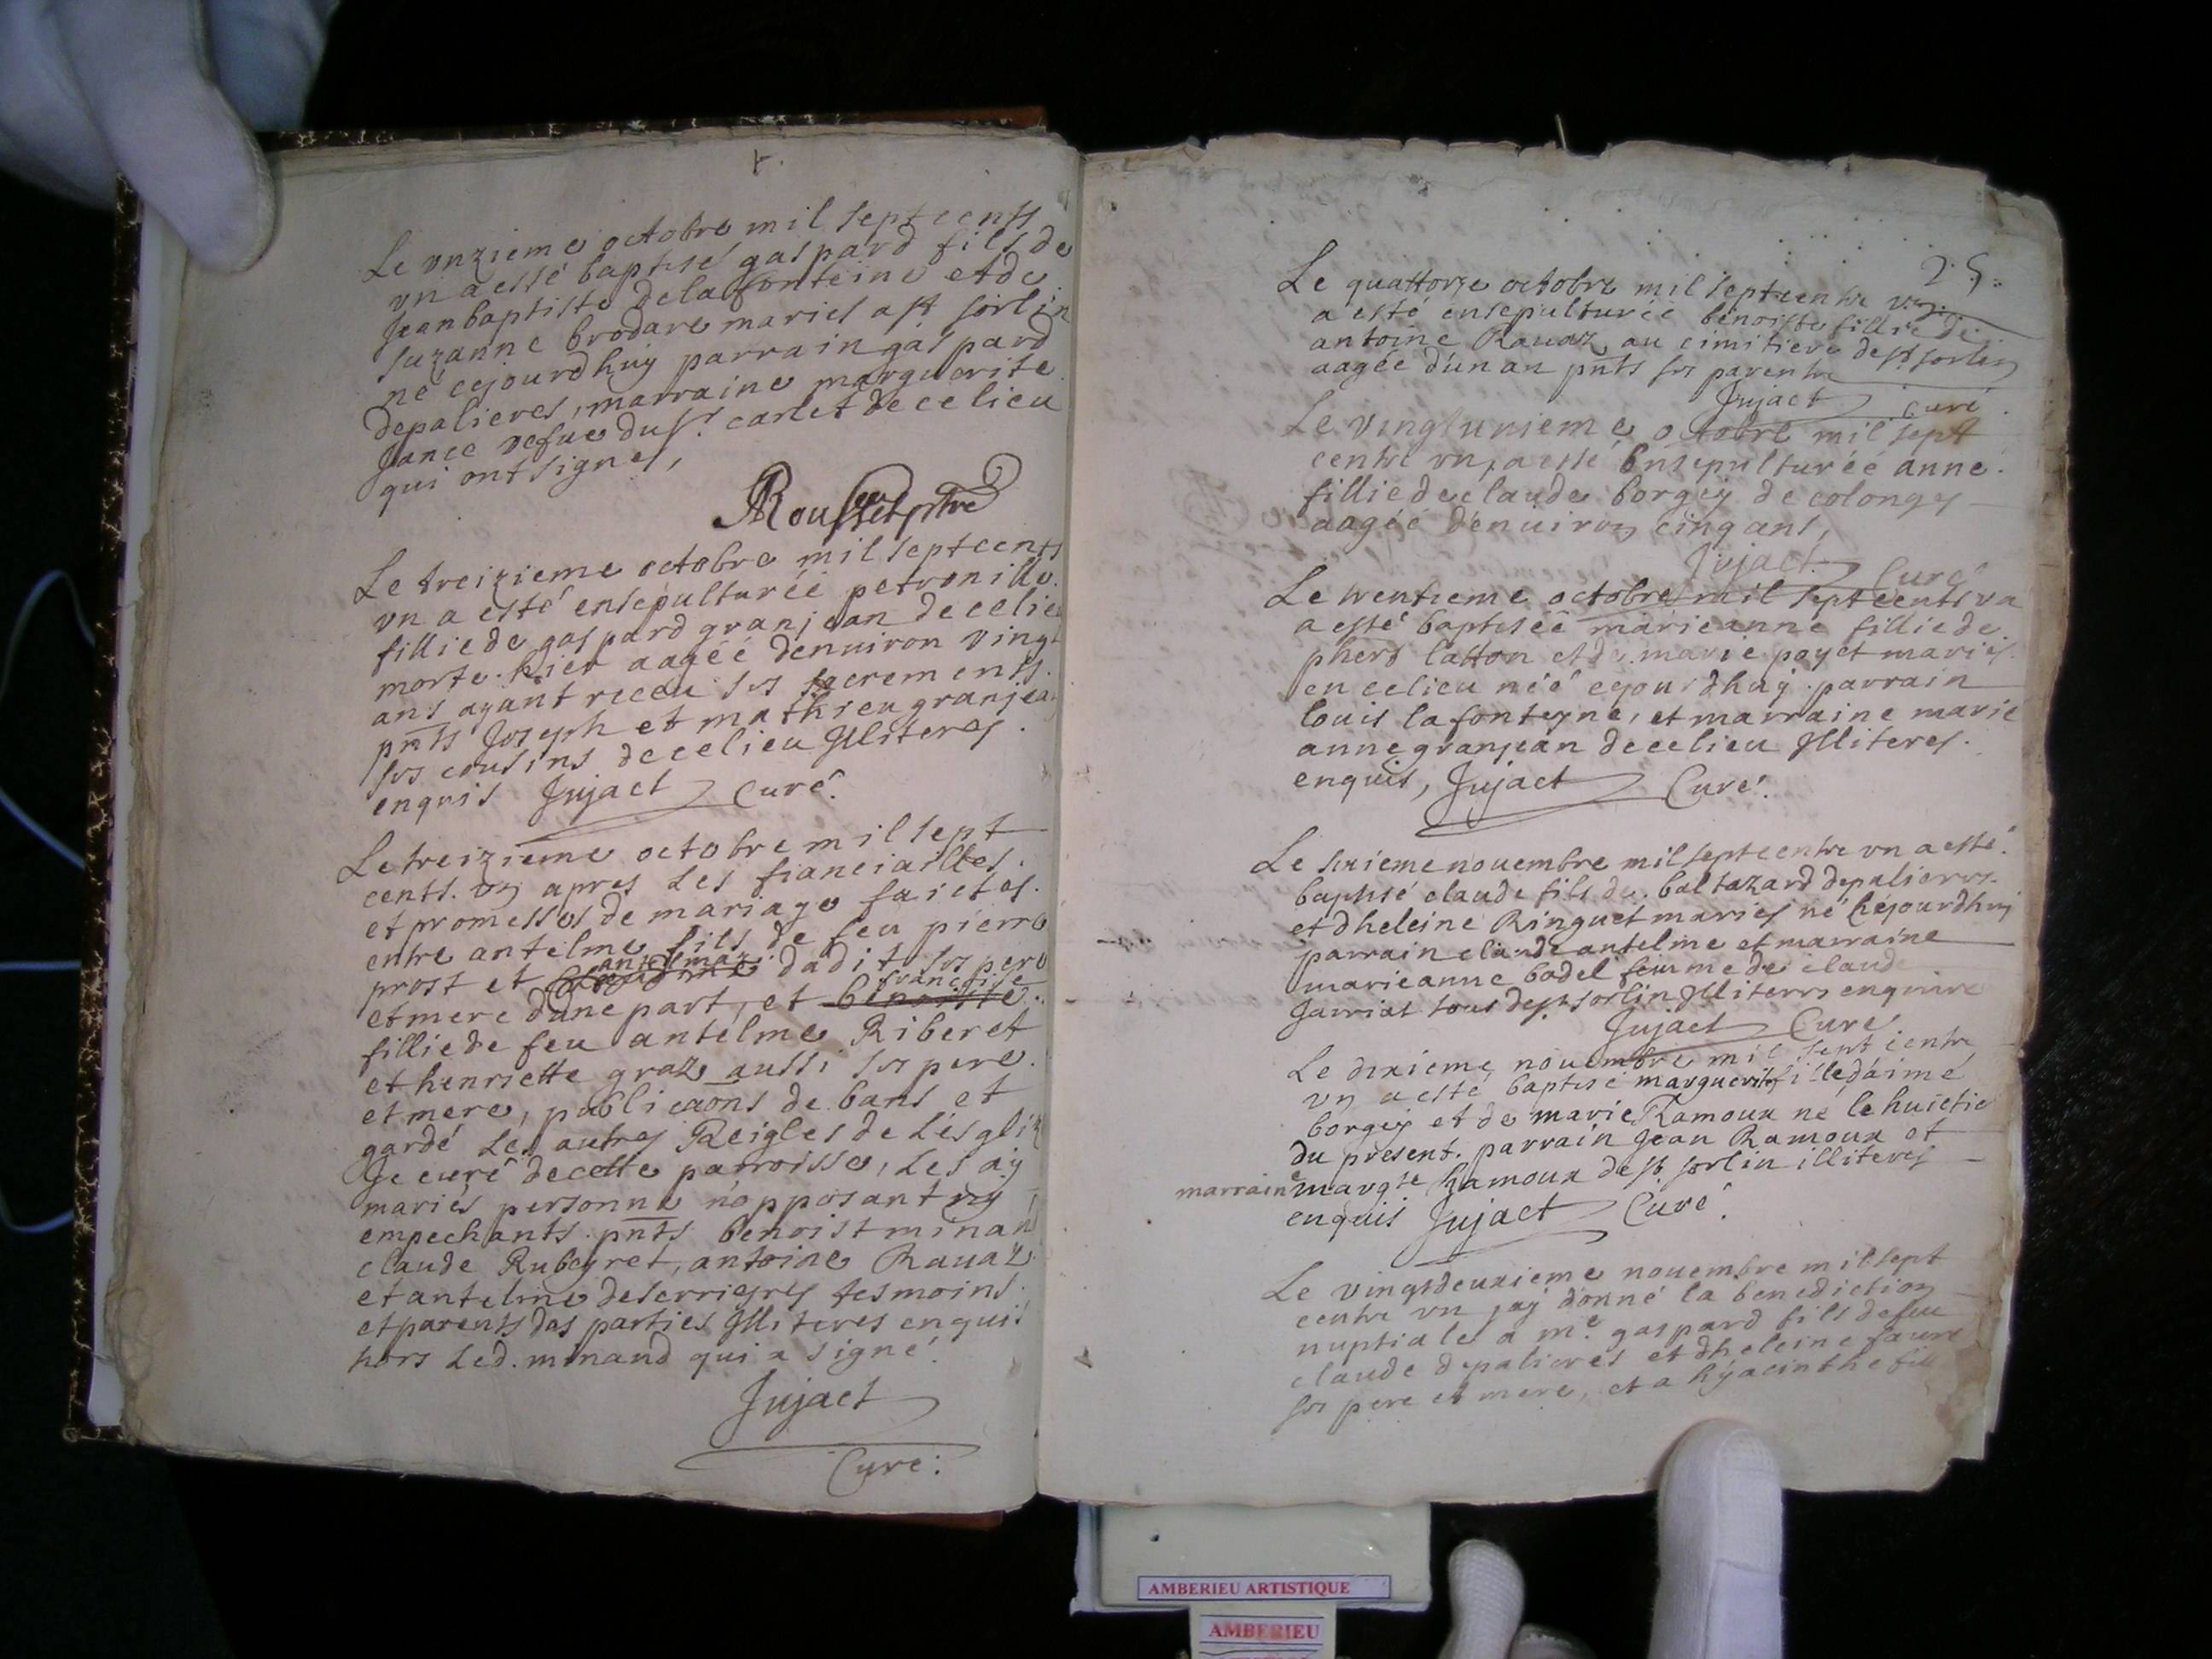 Le unzieme octobre mil sept cents
un a esté baptisés gaspard fils de
Jeanbaptiste delafonteine et de
suzanne brodare mariés a st sorlin
né cejourdhuy parrain gaspard
depalieres, marraine marguerite
Jance vefue du sr. carlet de ce lieu
qui ont signes,
Rousset ptre
Le treizieme octobre mil sept cents
un a esté ensepulturéé petronille
fillie de gaspard granjean de celieu
morte hier aagéé denuiron vingt
ans ayant receu ses sacrements
pnts Joseph et mathieu granjean
ses cousins de celieu Illiteres
enquis Jujact Curé.
Le treizieme octobre mil sept
cents un apres Les fianciailles
et promesses de mariage faictes
entre antelme fils de feu pierre
prost et dadit ses pere
francoise
et mere dune part, et benoitte
fillie de feu antelme Riberet
et henriette graz aussi ses pere
et mere, publicaons de bans et
gardé Les autres Reigles de Lesglize
Je curé de cette parroisse, Les ay
mariés personne nopposant ny
empechants pnts benoist minand
claude Rubeyret, antoine Rauaz
et antelme deserrieres tesmoins
et parents des parties Illiteres enquis
hors Led. minand qui a signé.
Jujact
Curé.
25.
Le quattorze octobre mil septcents un
a esté ensepulturéé benoiste fillie de
antoine Rauaz au cimitiere de st sorlin
aagéé dun an pnts ses parents
Jujact curé.
Le vingtunieme octobre mil sept
cents un, a esté Ensepulturéé anne
fillie de claude borgey de colonges
aagéé denuiron cinq ans,
Jujact Curé
Le trentieme octobre mil sept cents un
a esté baptiséé marieanne fillie de
phers latton et de marie payet mariés
en celieu néé cejourdhuy parrain
louis lafonteyne, et marraine marie
anne granjean de celieu Illiteres
enquis, Jujact Curé.
Le sixieme nouembre mil sept cents un a esté
baptisé claude fils de baltazard depalieres
et dheleine Ringuet mariés né cejourdhuy
parrain claude antelme et marraine
marieanne bodel femme de claude
Jarriat tous de st sorlin Illiteres enquis
Jujact Curé
Le dixieme nouembre mil sept cents
un a esté baptisé marguerite fille daimé
borgey et de marie Ramoux né le huictie
du present. parrain Jean Ramoux et
marraine margte Ramoux de st sorlin illiteres
enquis Jujact Curé.
Le vingtdeuxieme nouembre mil sept
cents un jay donné la benediction
nuptiale a me. gaspard fils de feu
claude depalieres et dheleine faure
ses pere et mere, et a hyacinthe fill
AMBERIEU ARTISTIQUE
AMBERIEU